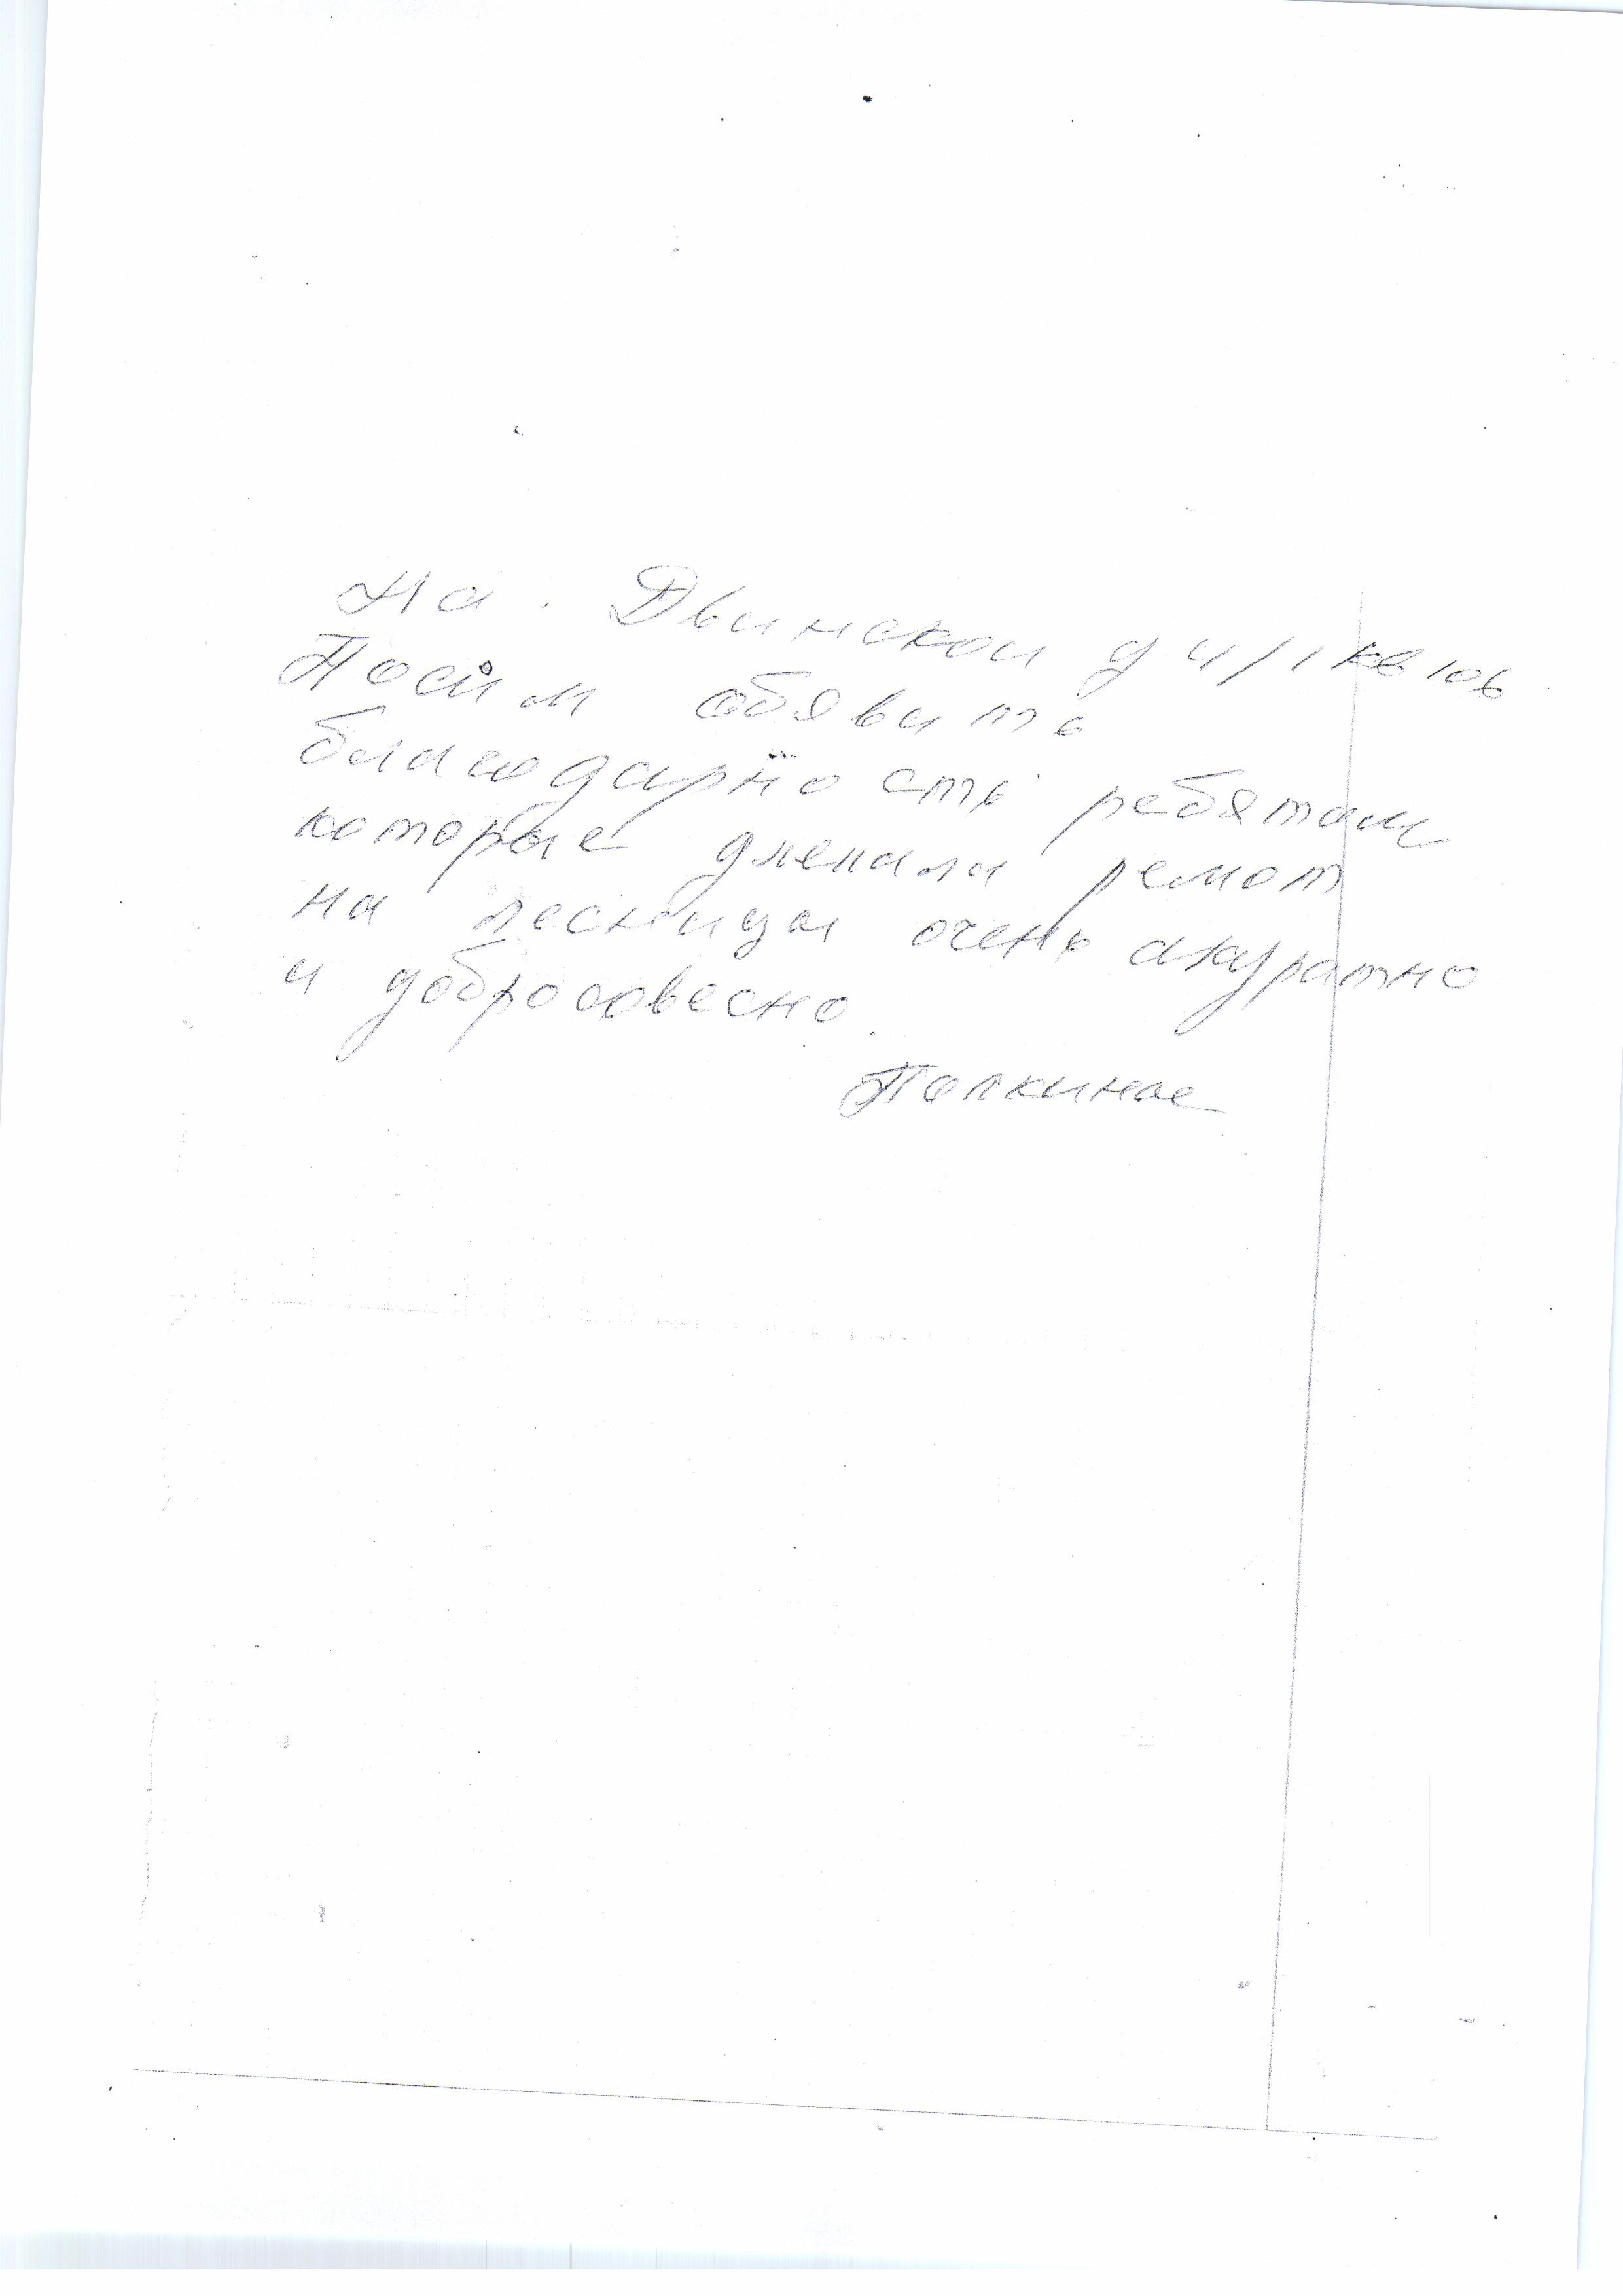 На. Двинской д 4/1 кв 106
Посим обявить
благодарность ребятам
которые длелали ремот
на лесницы очень акуратно
и добросовесно.
Полкиные